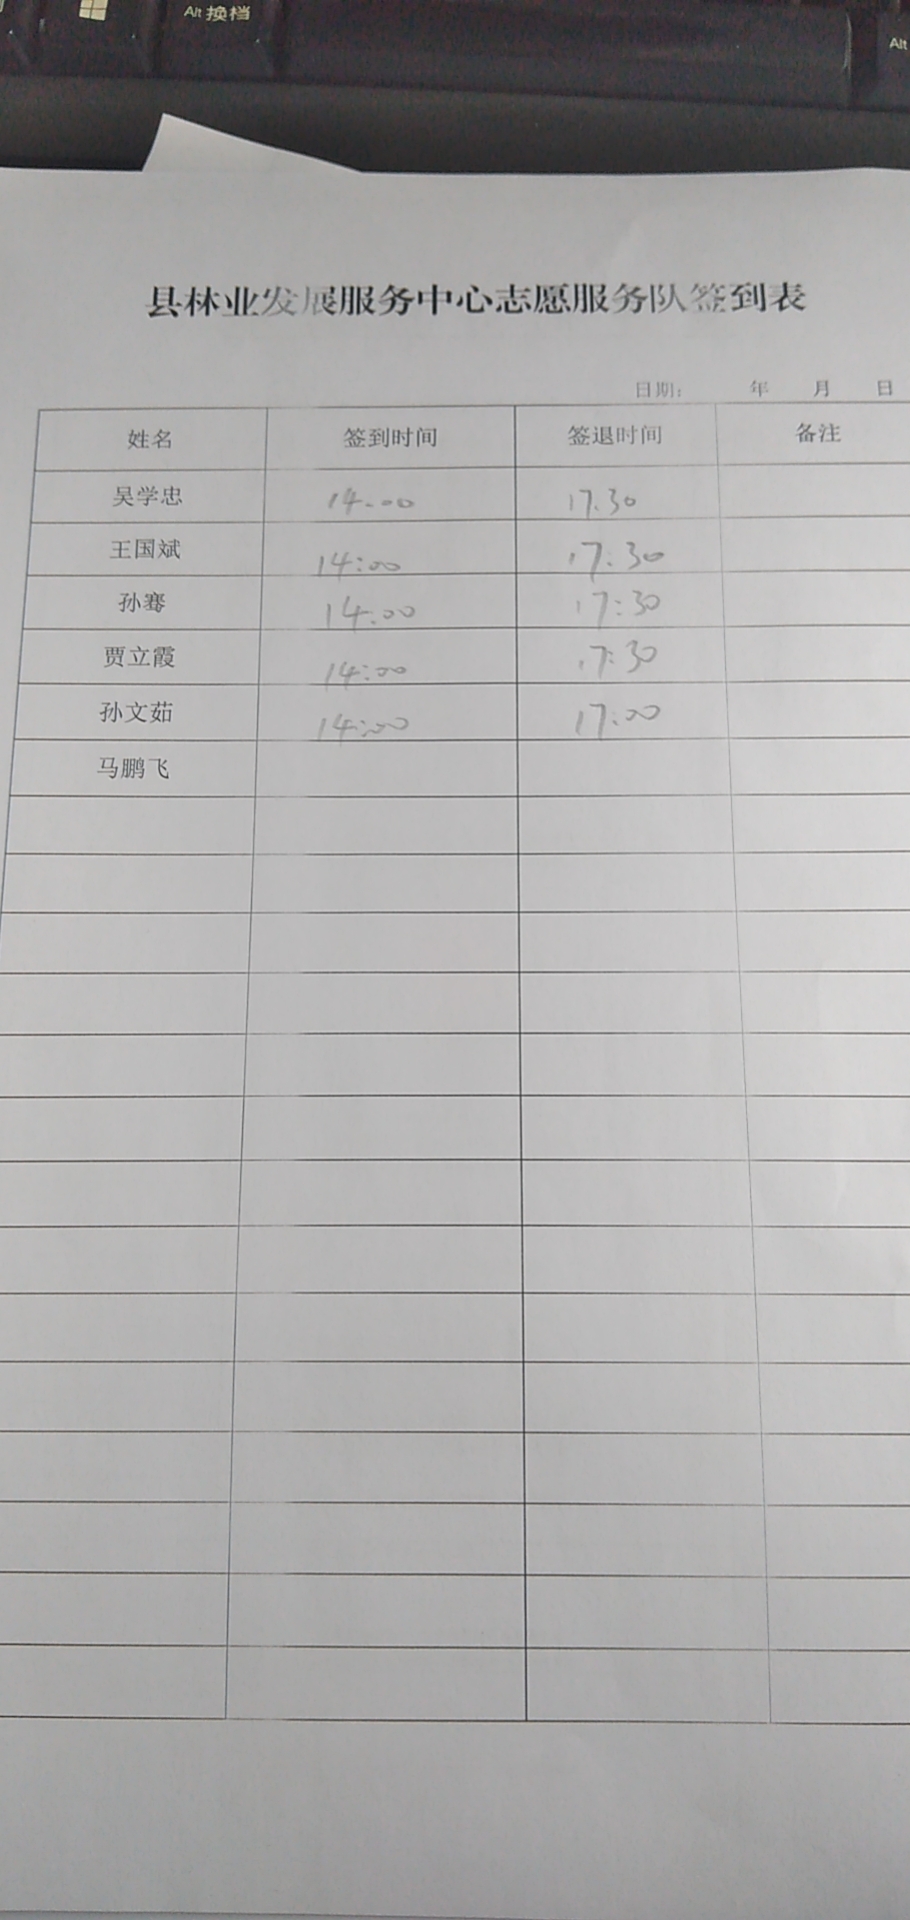 Alt 换档
Alt
县林业发展服务中心志愿服务队签到表
日期： 年 月 日
姓名 签到时间 签退时间 备注
吴学忠 14.00 17.30
王国斌 14:00 17:30
孙骞 14:00 17:30
贾立霞 14:00 17:30
孙文茹 14:00 17:00
马鹏飞